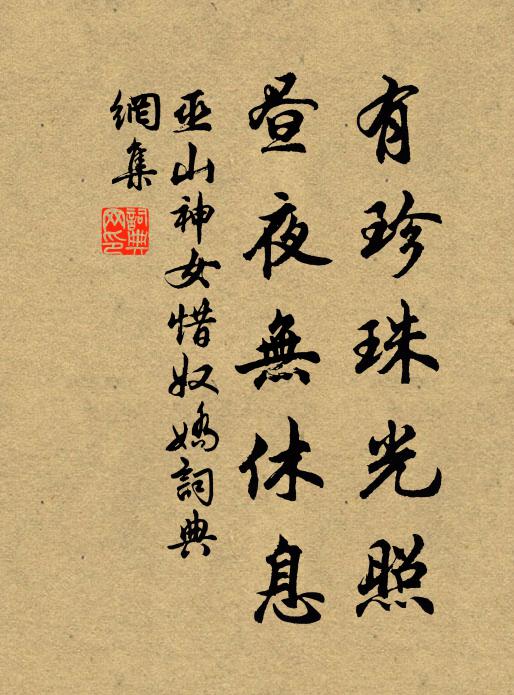 有珍珠光照
晝夜無休息
巫山神女惜奴嬌詞典
網集
詞典
网印